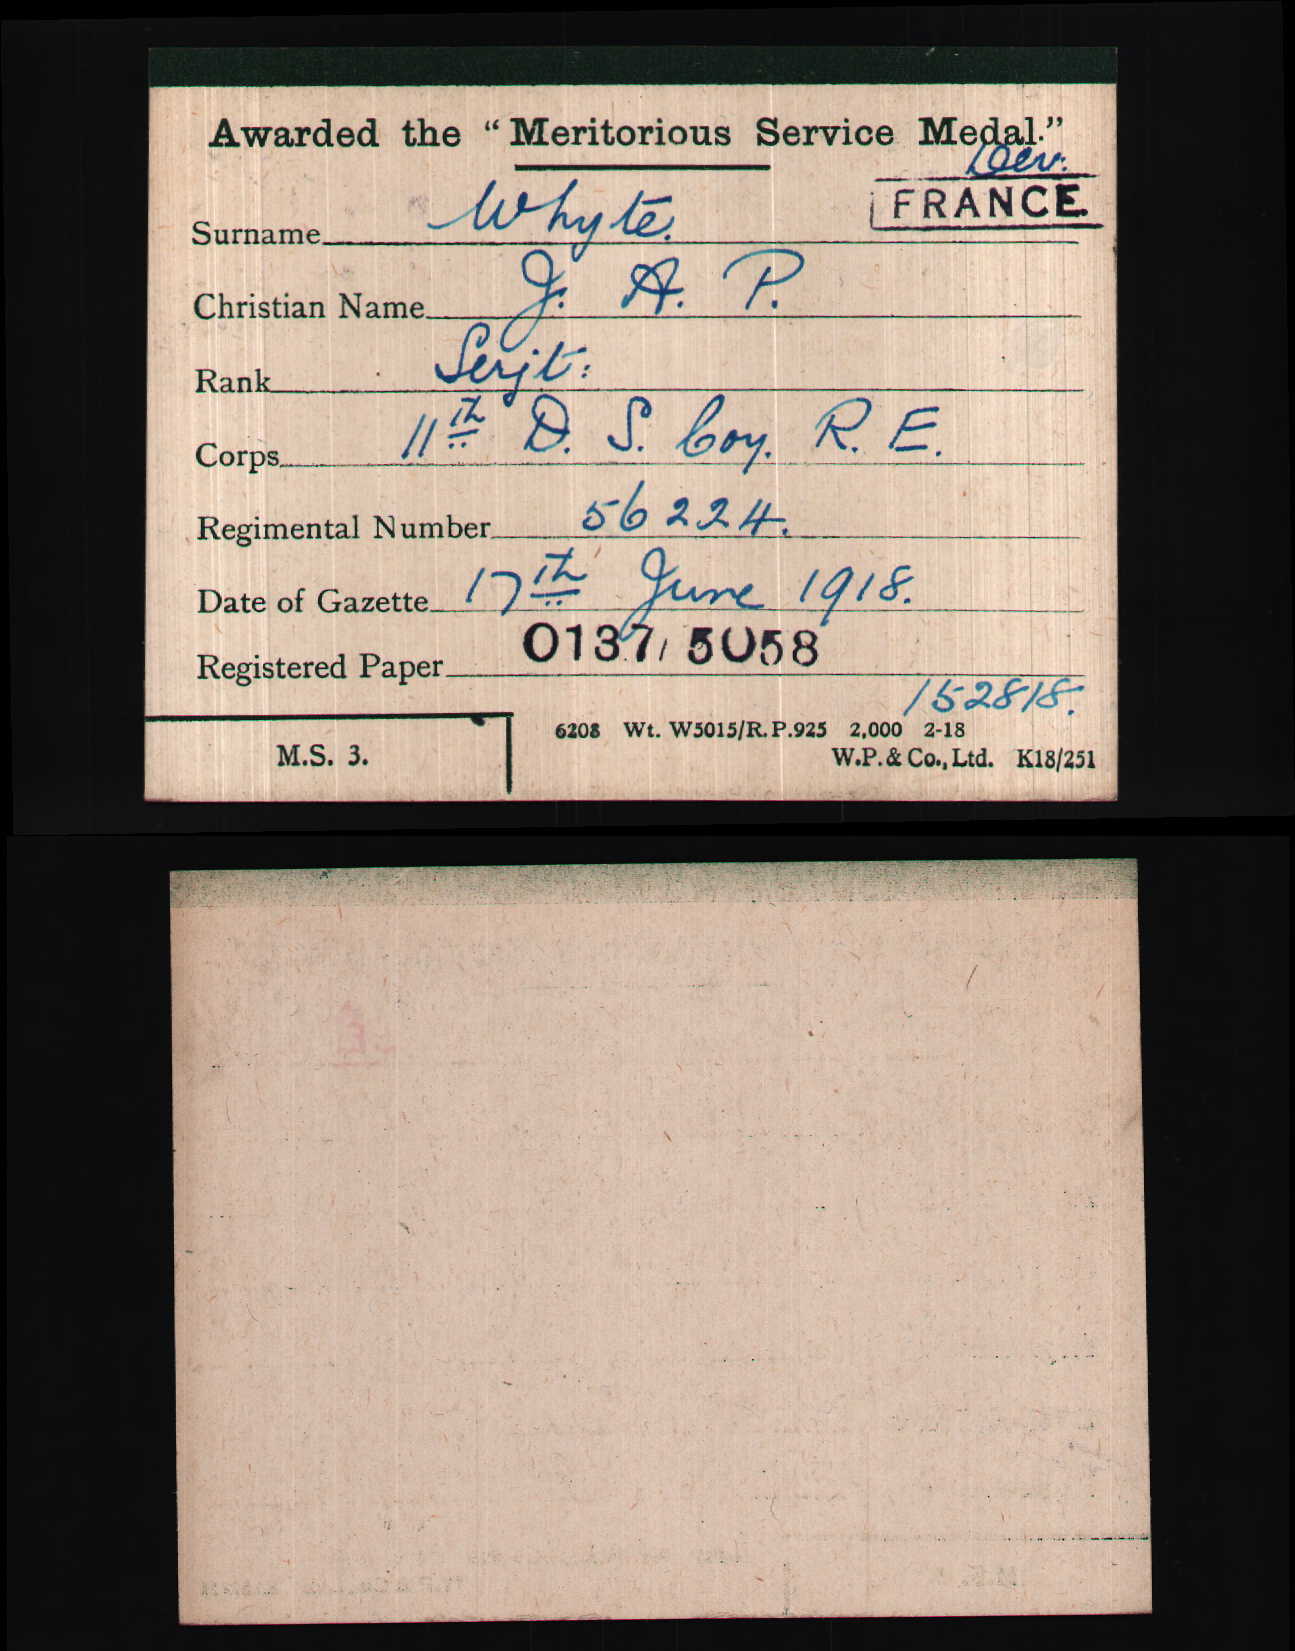 Awarded the "Meritorious Service Medal."
Dev.
FRANCE.
Surname Whyte.
Christian Name J. A. P.
Rank Serjt:
Corps 11th D. S. Coy. R. E.
Regimental Number 56224.
Date of Gazette 17th June 1918.
Registered Paper 0137/5058
152818.
6208 Wt. W5015/R.P.925 2,000 2-18
M.S. 3.
W.P. & Co., Ltd. K18/251